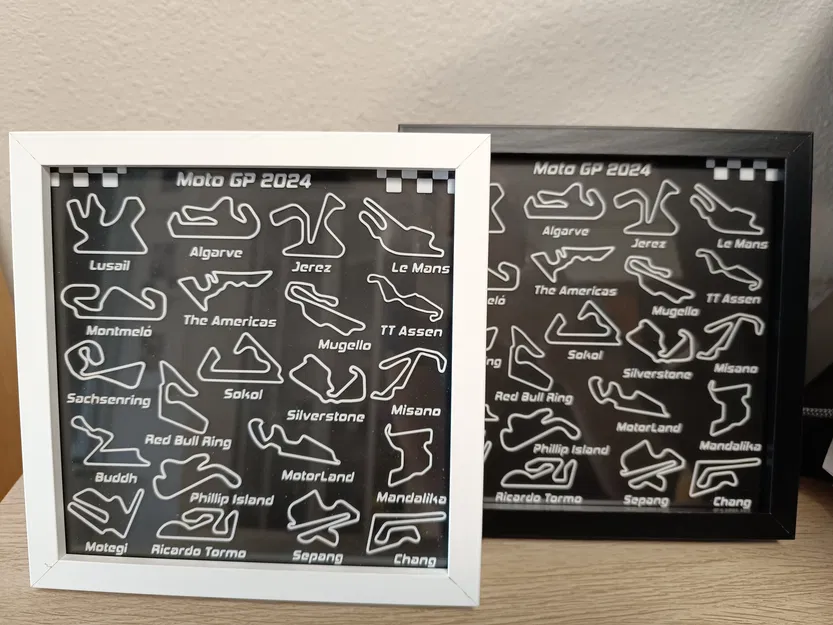 Moto GP 2024
Lusail
Algarve
Jerez
Le Mans
Montmeló
The Americas
Mugello
TT Assen
Sachsenring
Sokol
Silverstone
Misano
Red Bull Ring
Buddh
MotorLand
Phillip Island
Mandalika
Motegi
Ricardo Tormo
Sepang
Chang
Moto GP 2024
Algarve
Jerez
Le Mans
eló
The Americas
Mugello
TT Assen
Sokol
Silverstone
Misano
ng
Red Bull Ring
MotorLand
Mandalika
Phillip Island
Ricardo Tormo
Sepang
Chang